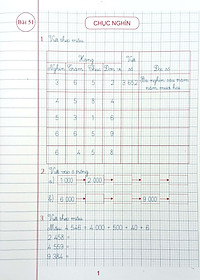 Bài 51
CHỤC NGHÌN
1. Viết theo mẫu:
Hàng Viết số Đọc số
Nghìn Trăm Chục Đơn vị
3 6 5 2 3 652 Ba nghìn sáu trăm năm mươi hai
4 5 8 4
5 3 1 6
6 6 5 9
6 4 5 8
2. Viết vào ô trống:
a) 1 000 2 000
b) 6 000 9 000
3. Viết theo mẫu:
Mẫu: 4 546 = 4 000 + 500 + 40 + 6
2 458 =
4 559 =
9 384 =
1